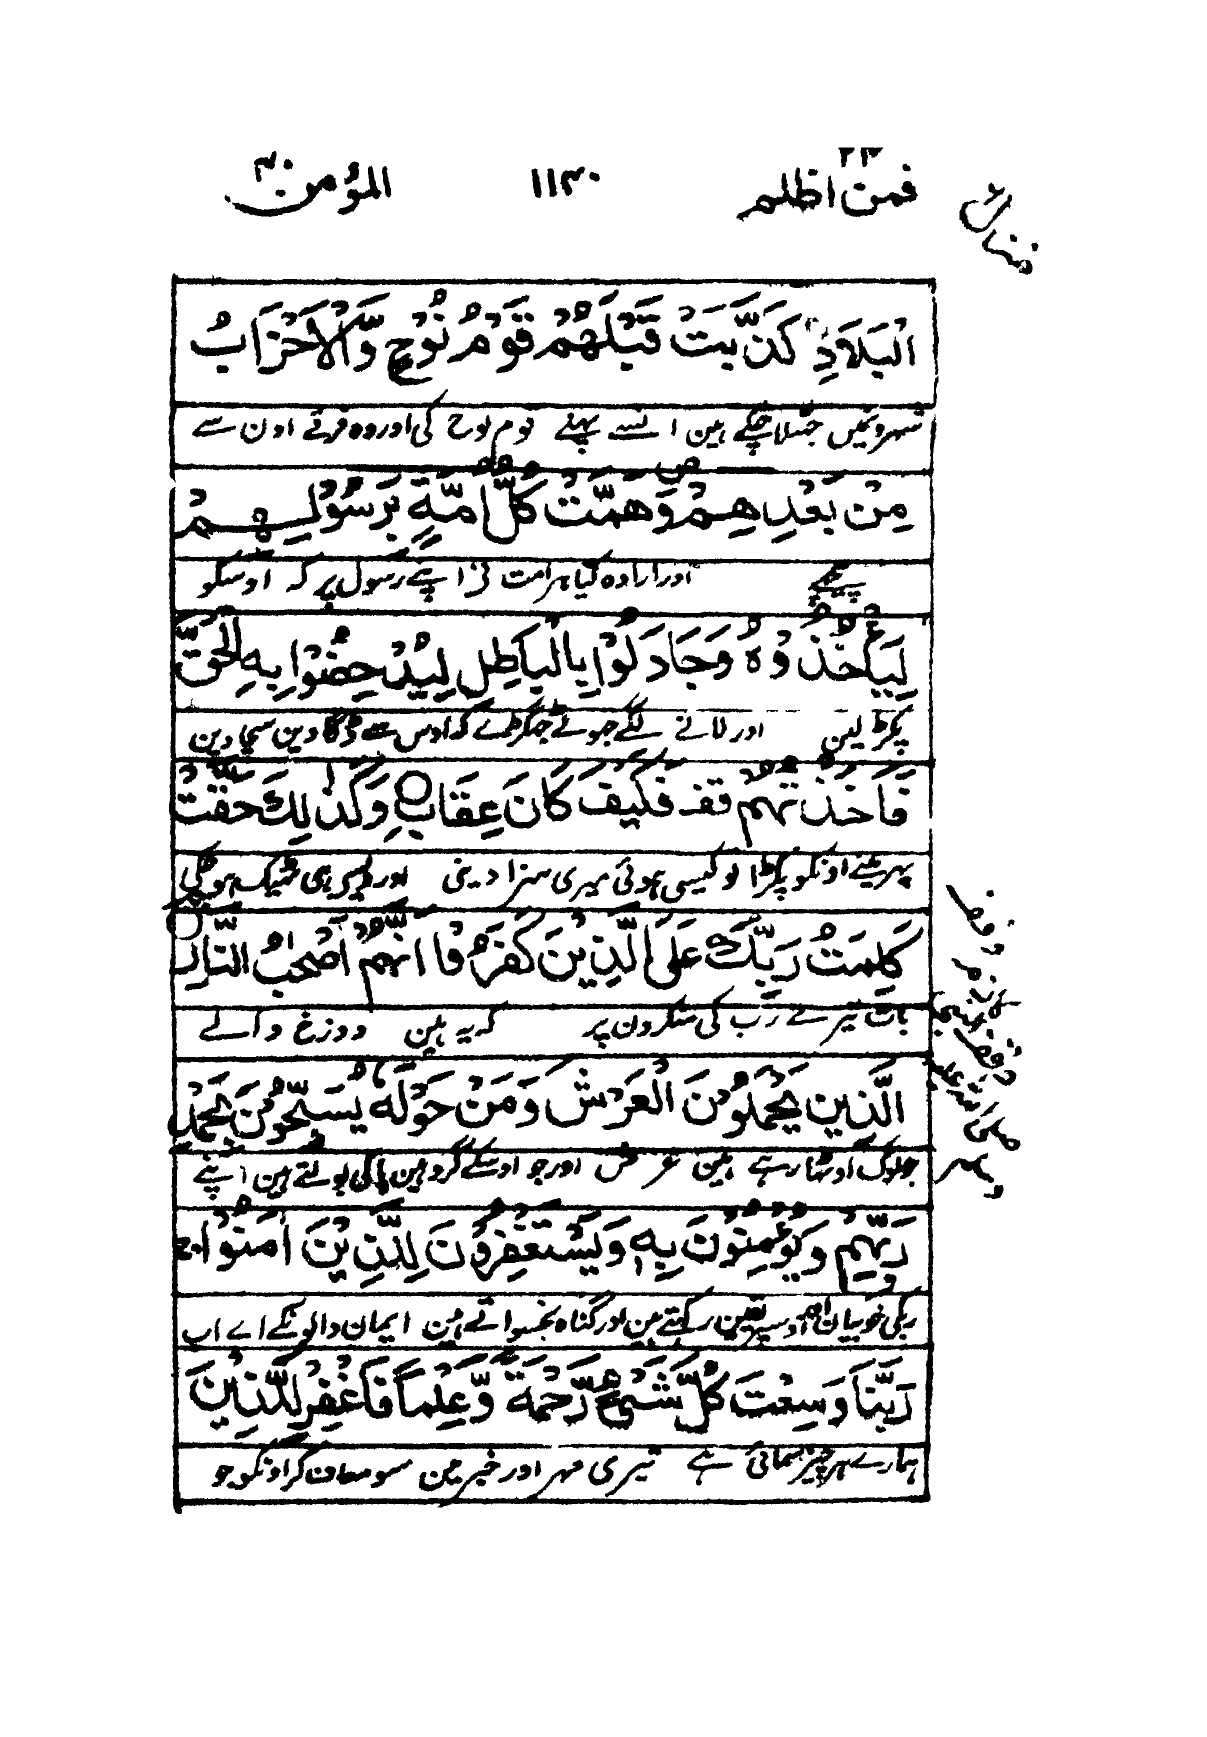 فمن اظلم ٢٤ ١١٣٠ المؤمن ٤٠
الْبِلَادِ كَذَّبَتْ قَبْلَهُمْ قَوْمُ نُوْحٍ وَّالْاَحْزَابُ
شہرونمیں جھٹلا چکے ہین اُنسے پہلے قوم نوح کی اور وہ فرقے اون سے
مِنْ بَعْدِهِمْ وَهَمَّتْ كُلُّ اُمَّةٍ بِرَسُوْلِهِمْ
پیچھے اور ارادہ کیا ہر امت نے اپنے رسول پر کہ اوسکو
لِيَاْخُذُوْهُ وَجَادَلُوْا بِالْبَاطِلِ لِيُدْحِضُوْا بِهِ الْحَقَّ
پکڑ لین اور لانے لگے جھوٹے جھگڑے کہ اوس سے ڈگا دین سچا دین
فَاَخَذْتُهُمْ قف فَكَيْفَ كَانَ عِقَابِ وَكَذٰلِكَ حَقَّتْ
پہر مینے اونکو پکڑا تو کیسی ہوئی میری سزا دینی اور ویسی ہی ٹھیک ہو چکی
كَلِمَتُ رَبِّكَ عَلَى الَّذِيْنَ كَفَرُوْا اَنَّهُمْ اَصْحٰبُ النَّارِ
بات تیرے رب کی منکرون پر کہ یہ ہین دوزخ والے
اَلَّذِيْنَ يَحْمِلُوْنَ الْعَرْشَ وَمَنْ حَوْلَهٗ يُسَبِّحُوْنَ بِحَمْدِ
جو لوگ اوٹھا رہے ہین عرش اور جو اوسکے گرد ہین پاکی بولتے ہین اپنے
رَبِّهِمْ وَيُؤْمِنُوْنَ بِهٖ وَيَسْتَغْفِرُوْنَ لِلَّذِيْنَ اٰمَنُوْا ج
ربکی خوبیان اور اوسپر یقین رکھتے ہین اور گناہ بخشواتے ہین ایمان والونکے اے رب
رَبَّنَا وَسِعْتَ كُلَّ شَيْءٍ رَّحْمَةً وَّعِلْمًا فَاغْفِرْ لِلَّذِيْنَ
ہمارے ہر چیز سمائی ہے تیری مہر اور خبر مین سو معاف کر اونکو جو